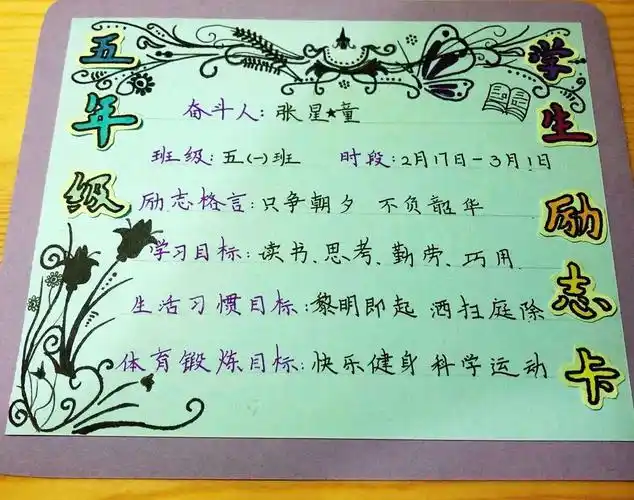 五年级
学生励志卡
奋斗人：张星★童
班级：五(一)班 时段：2月17日-3月1日
励志格言：只争朝夕 不负韶华
学习目标：读书、思考、勤劳、巧用
生活习惯目标：黎明即起 洒扫庭除
体育锻炼目标：快乐健身 科学运动